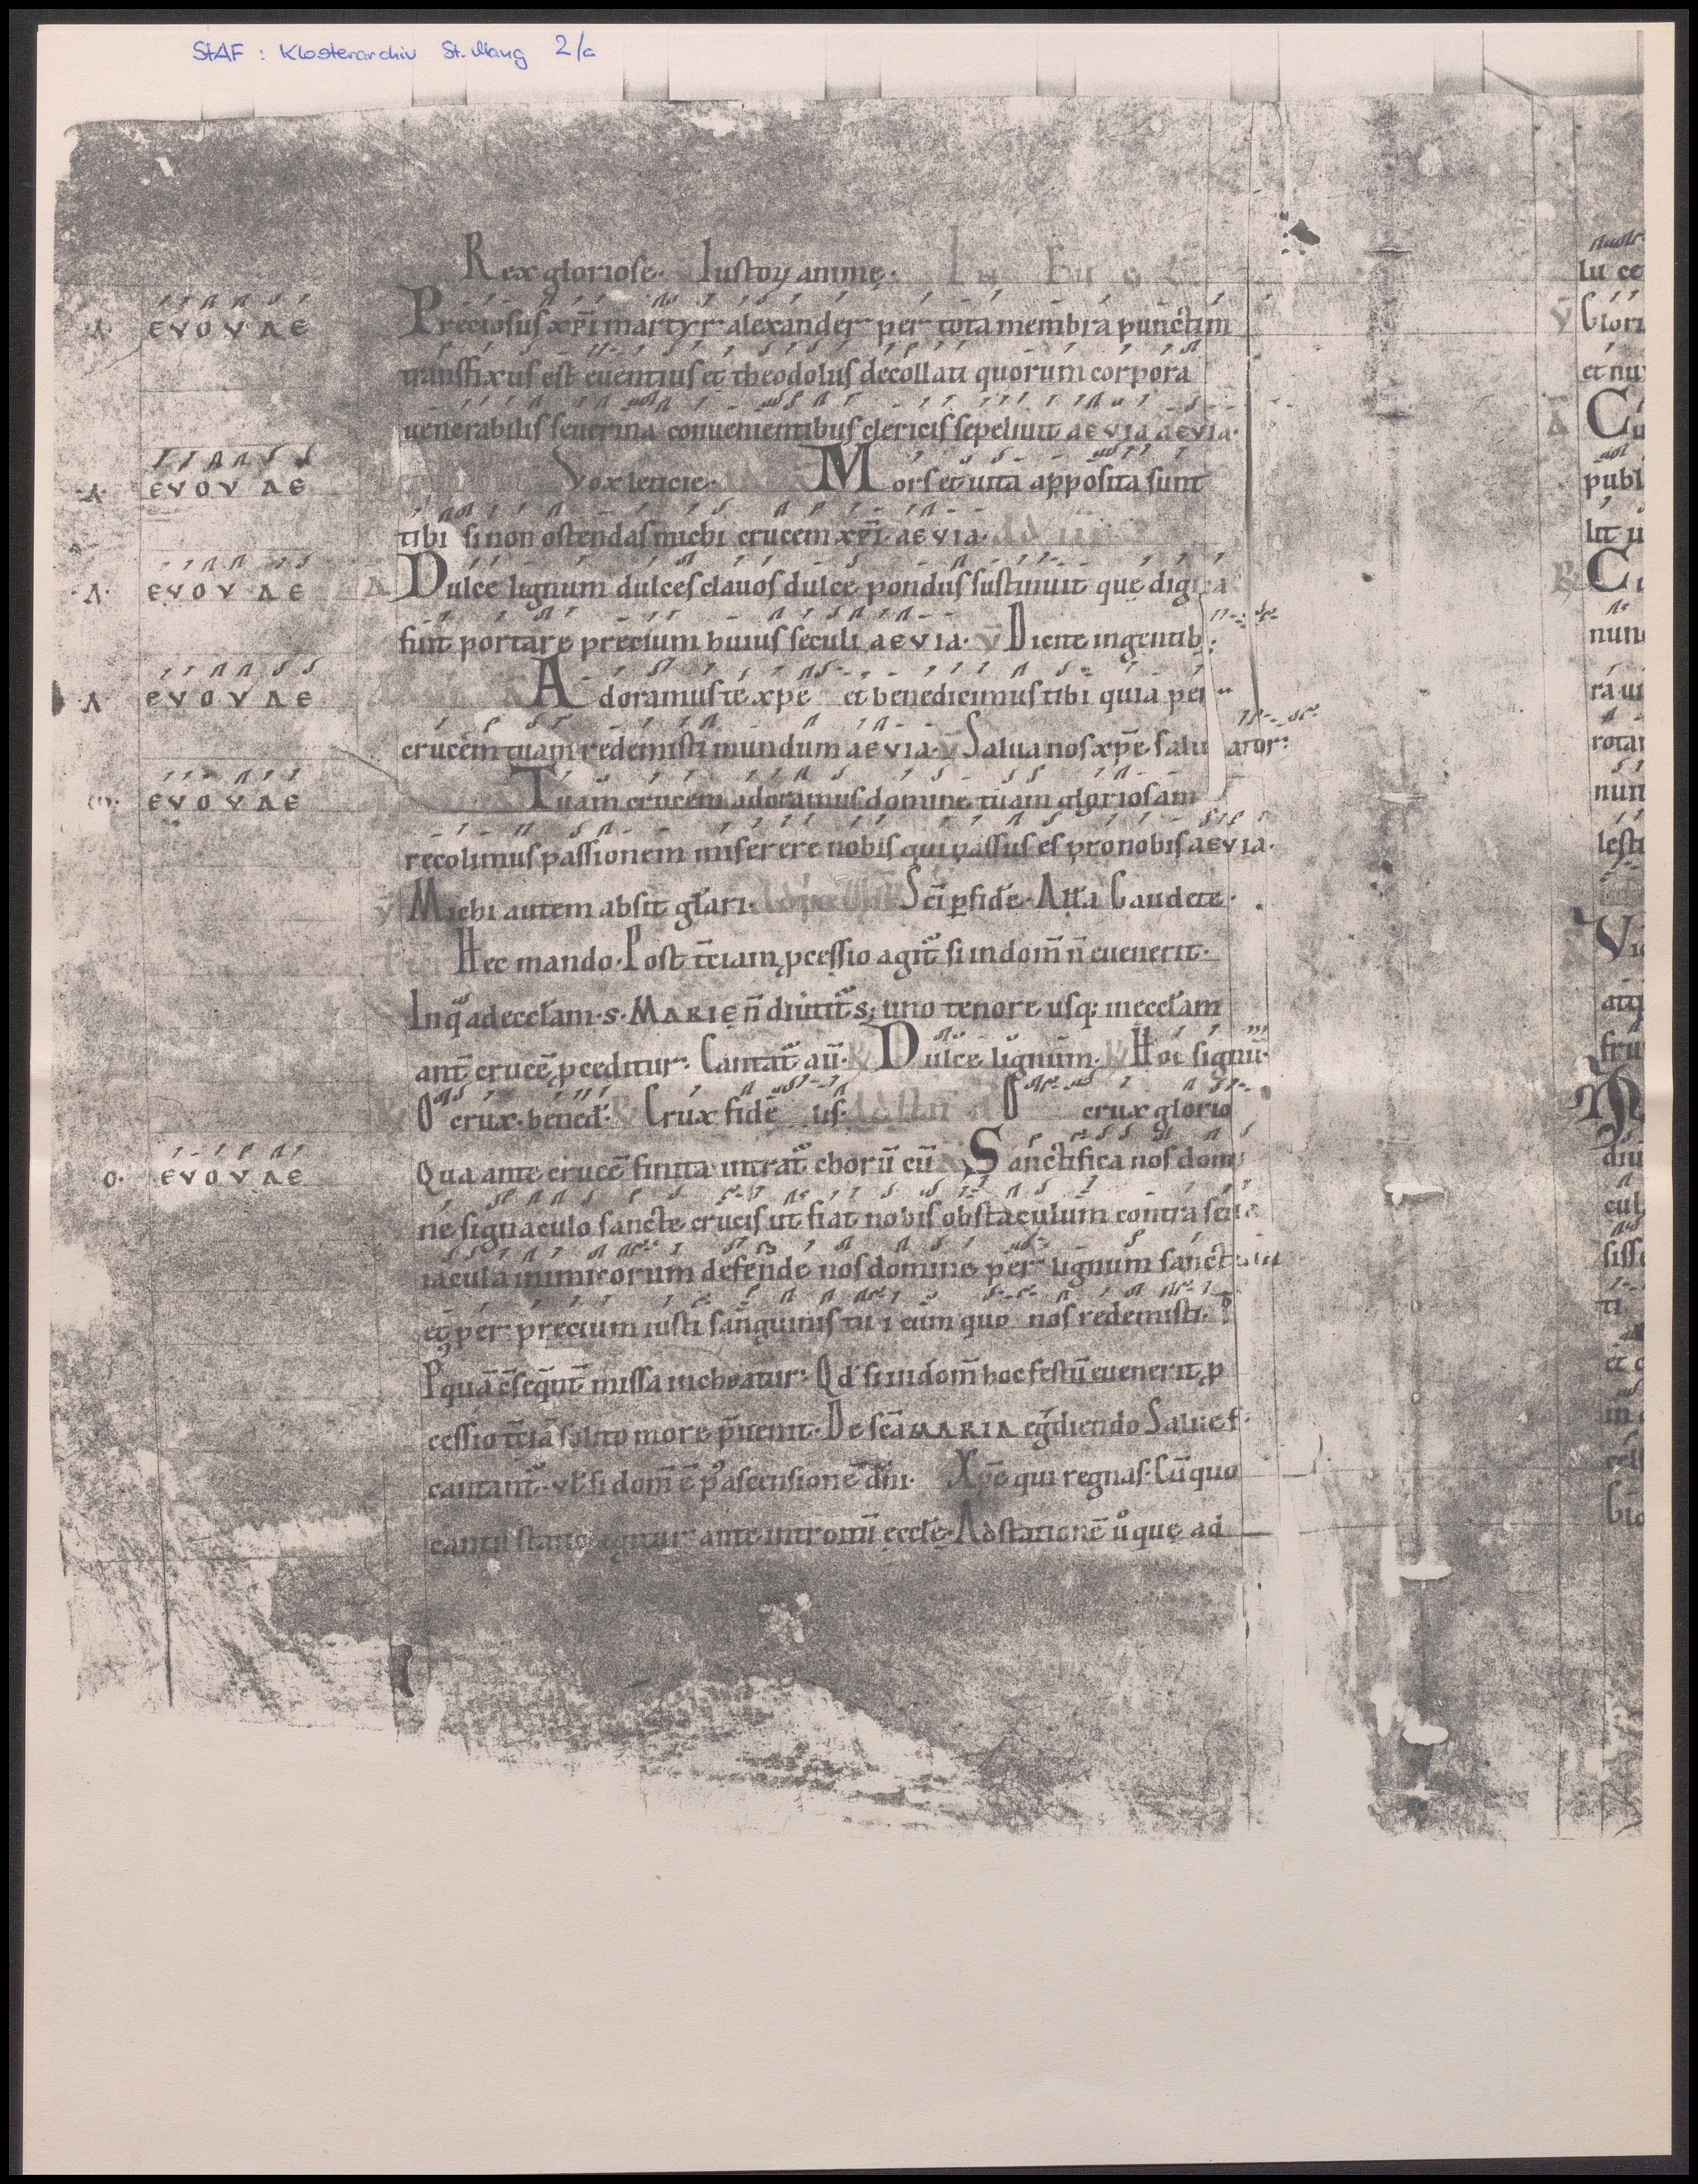 StAF : Klosterarchiv St. Mang 2/c
Rex gloriose. Iustoꝝ animę.
A EVOVAE Preciosus xp̄i martyr alexander per tota membra punctim
transfixus est euentius et theodolus decollati quorum corpora
uenerabilis seuerina conuenientibus clericis sepeliuit aevia aevia.
.A. EVOVAE Vox leticie. Mors et uita apposita sunt
tibi si non ostendas michi crucem xp̄i. aevia.
.A. EVOVAE A Dulce lignum dulces clauos dulce pondus sustinuit quę digna
fuit portare precium huius seculi aevia. v̄ Dicite in gentib;
.A. EVOVAE Adoramus te xp̄e et benedicimus tibi quia per
crucem tuam redemisti mundum aevia. v̄ Salua nos xp̄e saluator:
EVOVAE Tuam crucem adoramus domine tuam gloriosam
recolimus passionem miserere nobis qui passus es pro nobis aevia.
v̄ Michi autem absit gl̄ari. Sc̄i ꝑ fidē. All̄a Gaudete.
Hec mando. Post t̄ciam ꝓcessio agit̄ si in dom̄ n̄ euenerit.
In qᵃ ad eccl̄am .s. MARIE n̄ diuitit̄s; uno tenore usq; in eccl̄am
ant̄ crucē ꝓceditur. Cantat̄ au. ℟ Dulce lignum. ℟ Hoc signū.
O crux. bened̄. ℟ Crux fidelis. O crux glorio
o. EVOVAE Qua ante crucē finita intrat̄ chorū cū A Sanctifica nos domi
ne signaculo sancte crucis ut fiat nobis obstaculum contra seua
iacula inimicorum defende nos domine per lignum sanctum
et per precium iusti sanguinis tui cum quo nos redemisti.
P quā c̄seq̄nt̄ missa inchoatur. Qd̄ si in dom̄ hoc festū euenerit ꝓ
cessio t̄ciā solito more p̄uenit. De sc̄a MARIA eḡdiendo Salue f.
cantant̄. vl̄ si dom̄ ē p⁹ ascensionē dn̄i. Xp̄e qui regnas. Cū quo
cantu statio agitur ante introitū eccl̄ę. Ad stationē ů quę ad
lu ce
v̄ Glori
et nu
A Cu
publ
lit u
℟ C
nun
ra ui
rotar
nun
lesti
Vi
atq
fru
diu
cul
siss
ti
et c